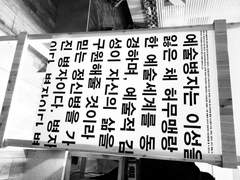 예술병자는 이성을
잃은 채 허무맹랑
한 예술세계를 동
경하며 예술적 감
성이 자신의 삶을
구원해줄 것이라
믿는 정신병을 가
진 병자이다. 병자